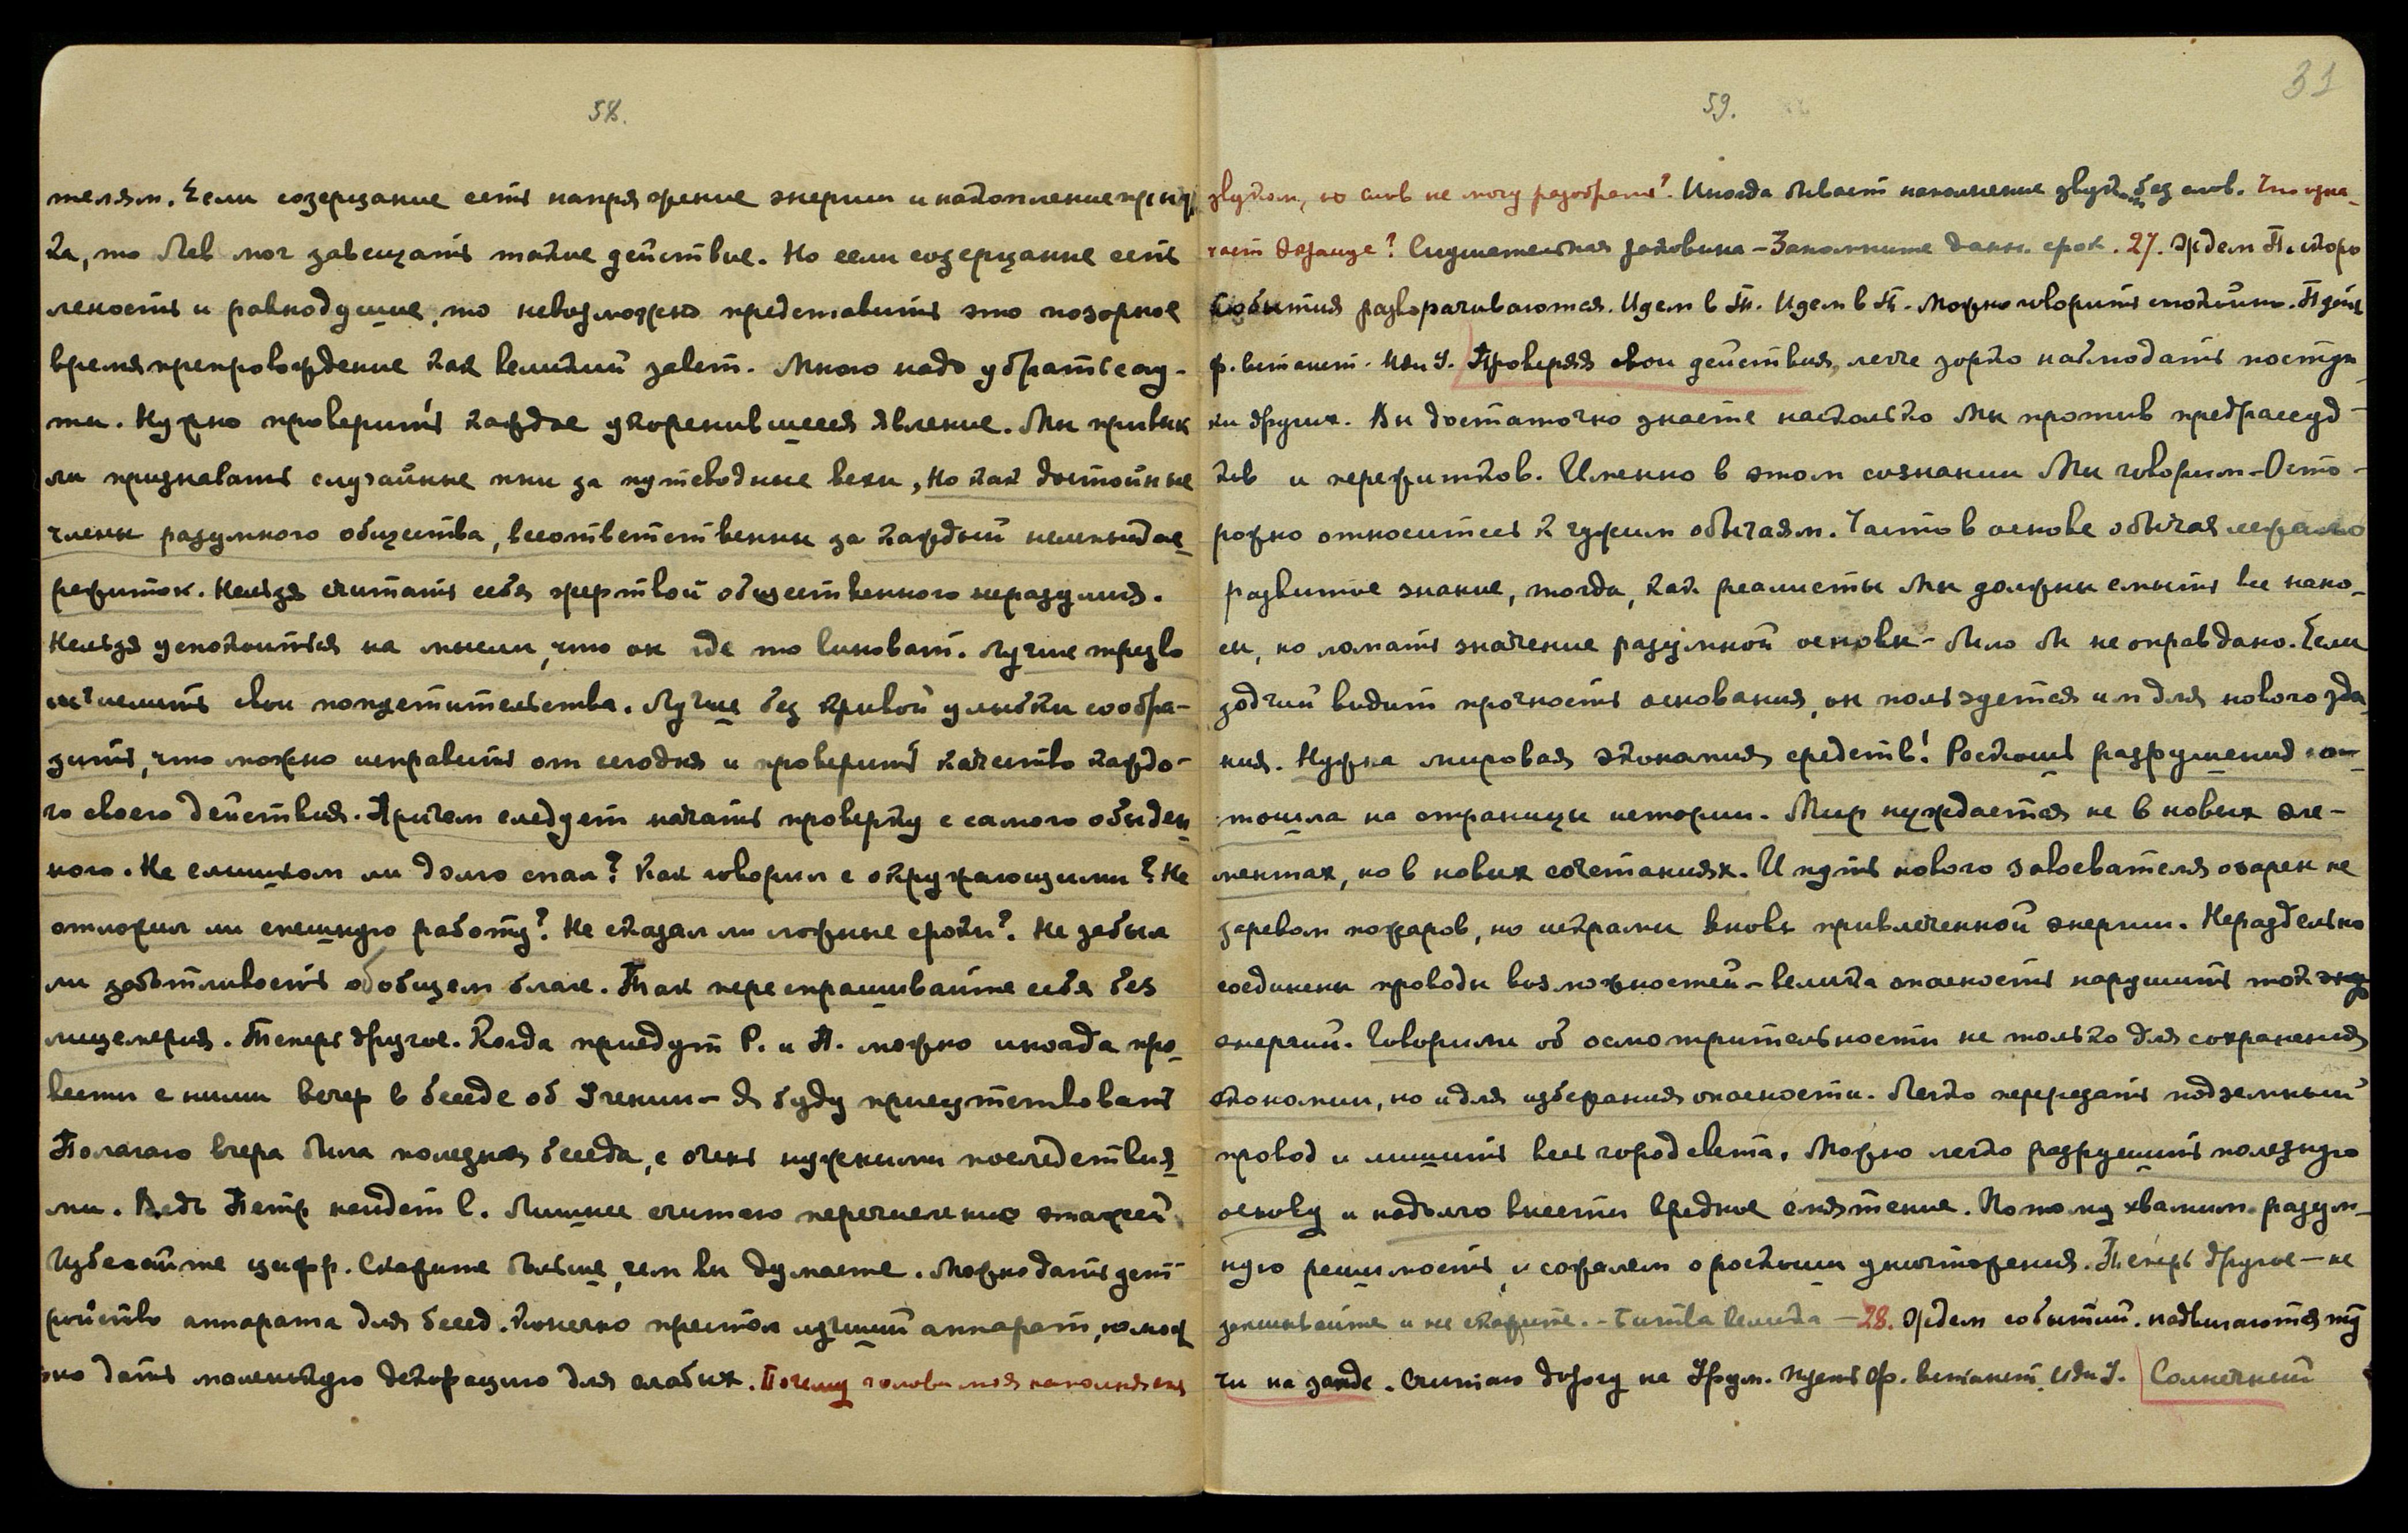 58.
телям. Если созерцание есть напряжение энергии и накопление
ка, то Лев мог завещать такие действие. Но если созерцание есть
леность и равнодушие, то невозможно представить это позорное
времяпрепровождение как великий завет. Много надо убрать с пу-
ти. Нужно проверить каждое укоренившееся явление. Мы привык
ли признавать случайные пни за путеводные вехи, но как достойные
члены разумного общества, все ответственны за каждый
режиток. Нельзя считать себя жертвой общественного неразумия.
Нельзя успокоиться на мысли, что он где то виноват. Лучше трезво
исчислить свои попустительства. Лучше без кривой улыбки сообра-
зить, что можно исправить от сегодня и проверить качество каждо-
го своего действия. Причем следует начать проверку с самого обыден
ного. Не слишком ли долго спал? Как говорил с окружающими? Не
отложил ли спешную работу? Не сказал ли ложные сроки? Не забыл
ли заботливость об общем благе. Так переспрашивайте себя без
лицемерия. Теперь другое. Когда приедут Р. и П. можно иногда про-
вести с ними вечер в беседе об Учении – Я буду присутствовать
Полагаю вчера была полезная беседа, с очень нужными последствия
ми. Ведь Петр неидет в. Лишним считаю перечисление этажей.
Избегайте цифр. Скажите больше, чем вы думаете. Можно дать уст
ройство аппарата для бесед. Конечно престол лучший аппарат, но мож
но дать маленькую декорацию для слабых. Почему голова моя наполняется
59.
31
звуком, но слов не могу разобрать? Иногда бывает наполнение звука без слов. Что озна-
чает Слушательная раковина – Запомните данн. срок. 27. Ждем П. скоро
События разворачиваются. Идем в Т. Идем в Т. Можно говорить спокойно. Пусть
ф. встанет. Иди У. Проверяя свои действия, легче зорко наблюдать поступ-
ки других. Вы достаточно знаете насколько Мы против предрассуд-
ков и пережитков. Именно в этом сознании Мы говорим – Осто-
рожно относитесь к чужим обычаям. Часто в основе обычая лежало
развитое знание, тогда, как реалисты Мы должны смыть все нано-
сы, но ломать значение разумной основы – было бы не оправдано. Если
зодчий видит прочность основания, он пользуется им для нового зда
ния. Нужна мировая экономия средств! Роскошь разрушения ото-
шла на страницы истории. Мир нуждается не в новых эле-
ментах, но в новых сочетаниях. И путь нового завоевателя озарен не
заревом пожаров, но искрами вновь привлеченной энергии. Нераздельно
соединены проводы возможностей – велика опасность нарушить ток
энергий. Говорили об осмотрительности не только для сохранения
экономии, но и для избежания опасности. Легко перерезать подземный
провод и лишить весь город света. Можно легко разрушить полезную
основу и надолго внести вредное смятение. Потому хвалим разум-
ную решимость, и сожалем о роскоши уничтожения. Теперь другое – не
и не скажите. – – 28. Ждем событий. надвигаются ту
чи на западе. Считаю дорогу на Урум. Пусть ф. встанет. Иди У. Солнечный